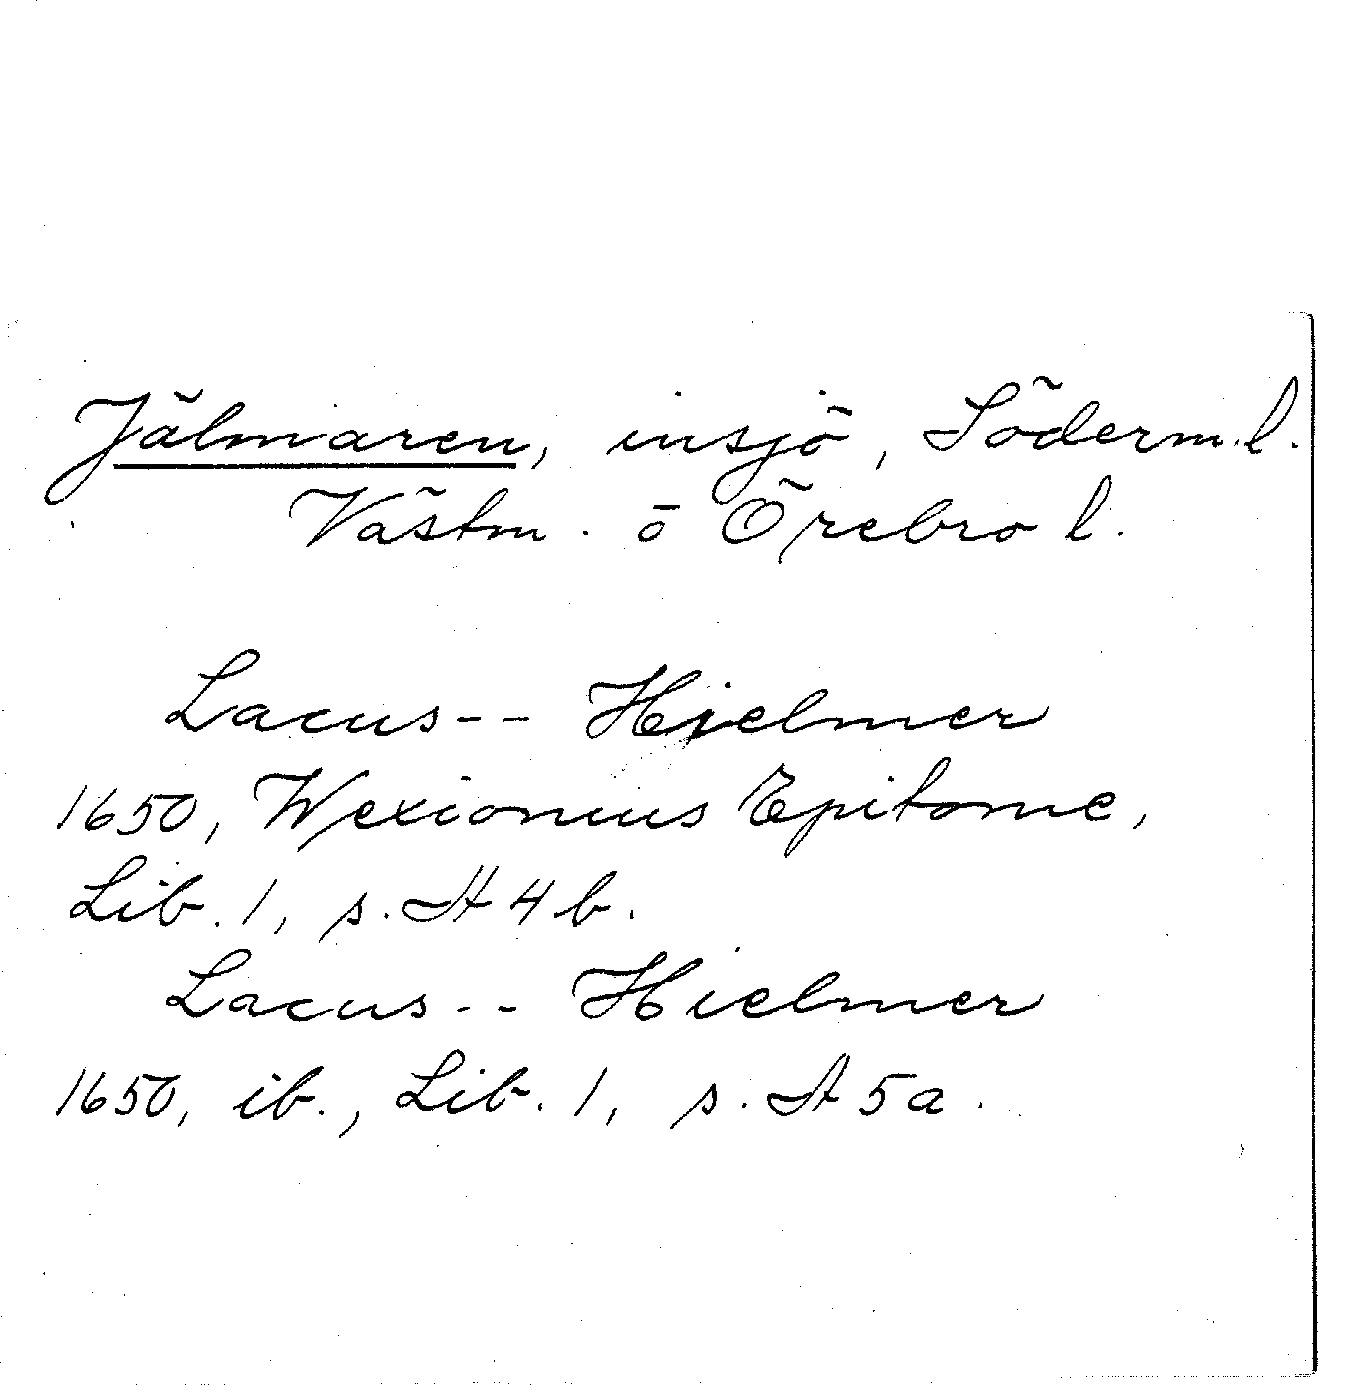 Jälmaren, insjö, Söderm.l.
Västm. o Örebro l.
Lacus-- Hjelmer
1650, Wexionius Epitome,
Lib. 1, s. A 4 b.
Lacus-- Hielmer
1650, ib., Lib. 1, s. A 5 a.